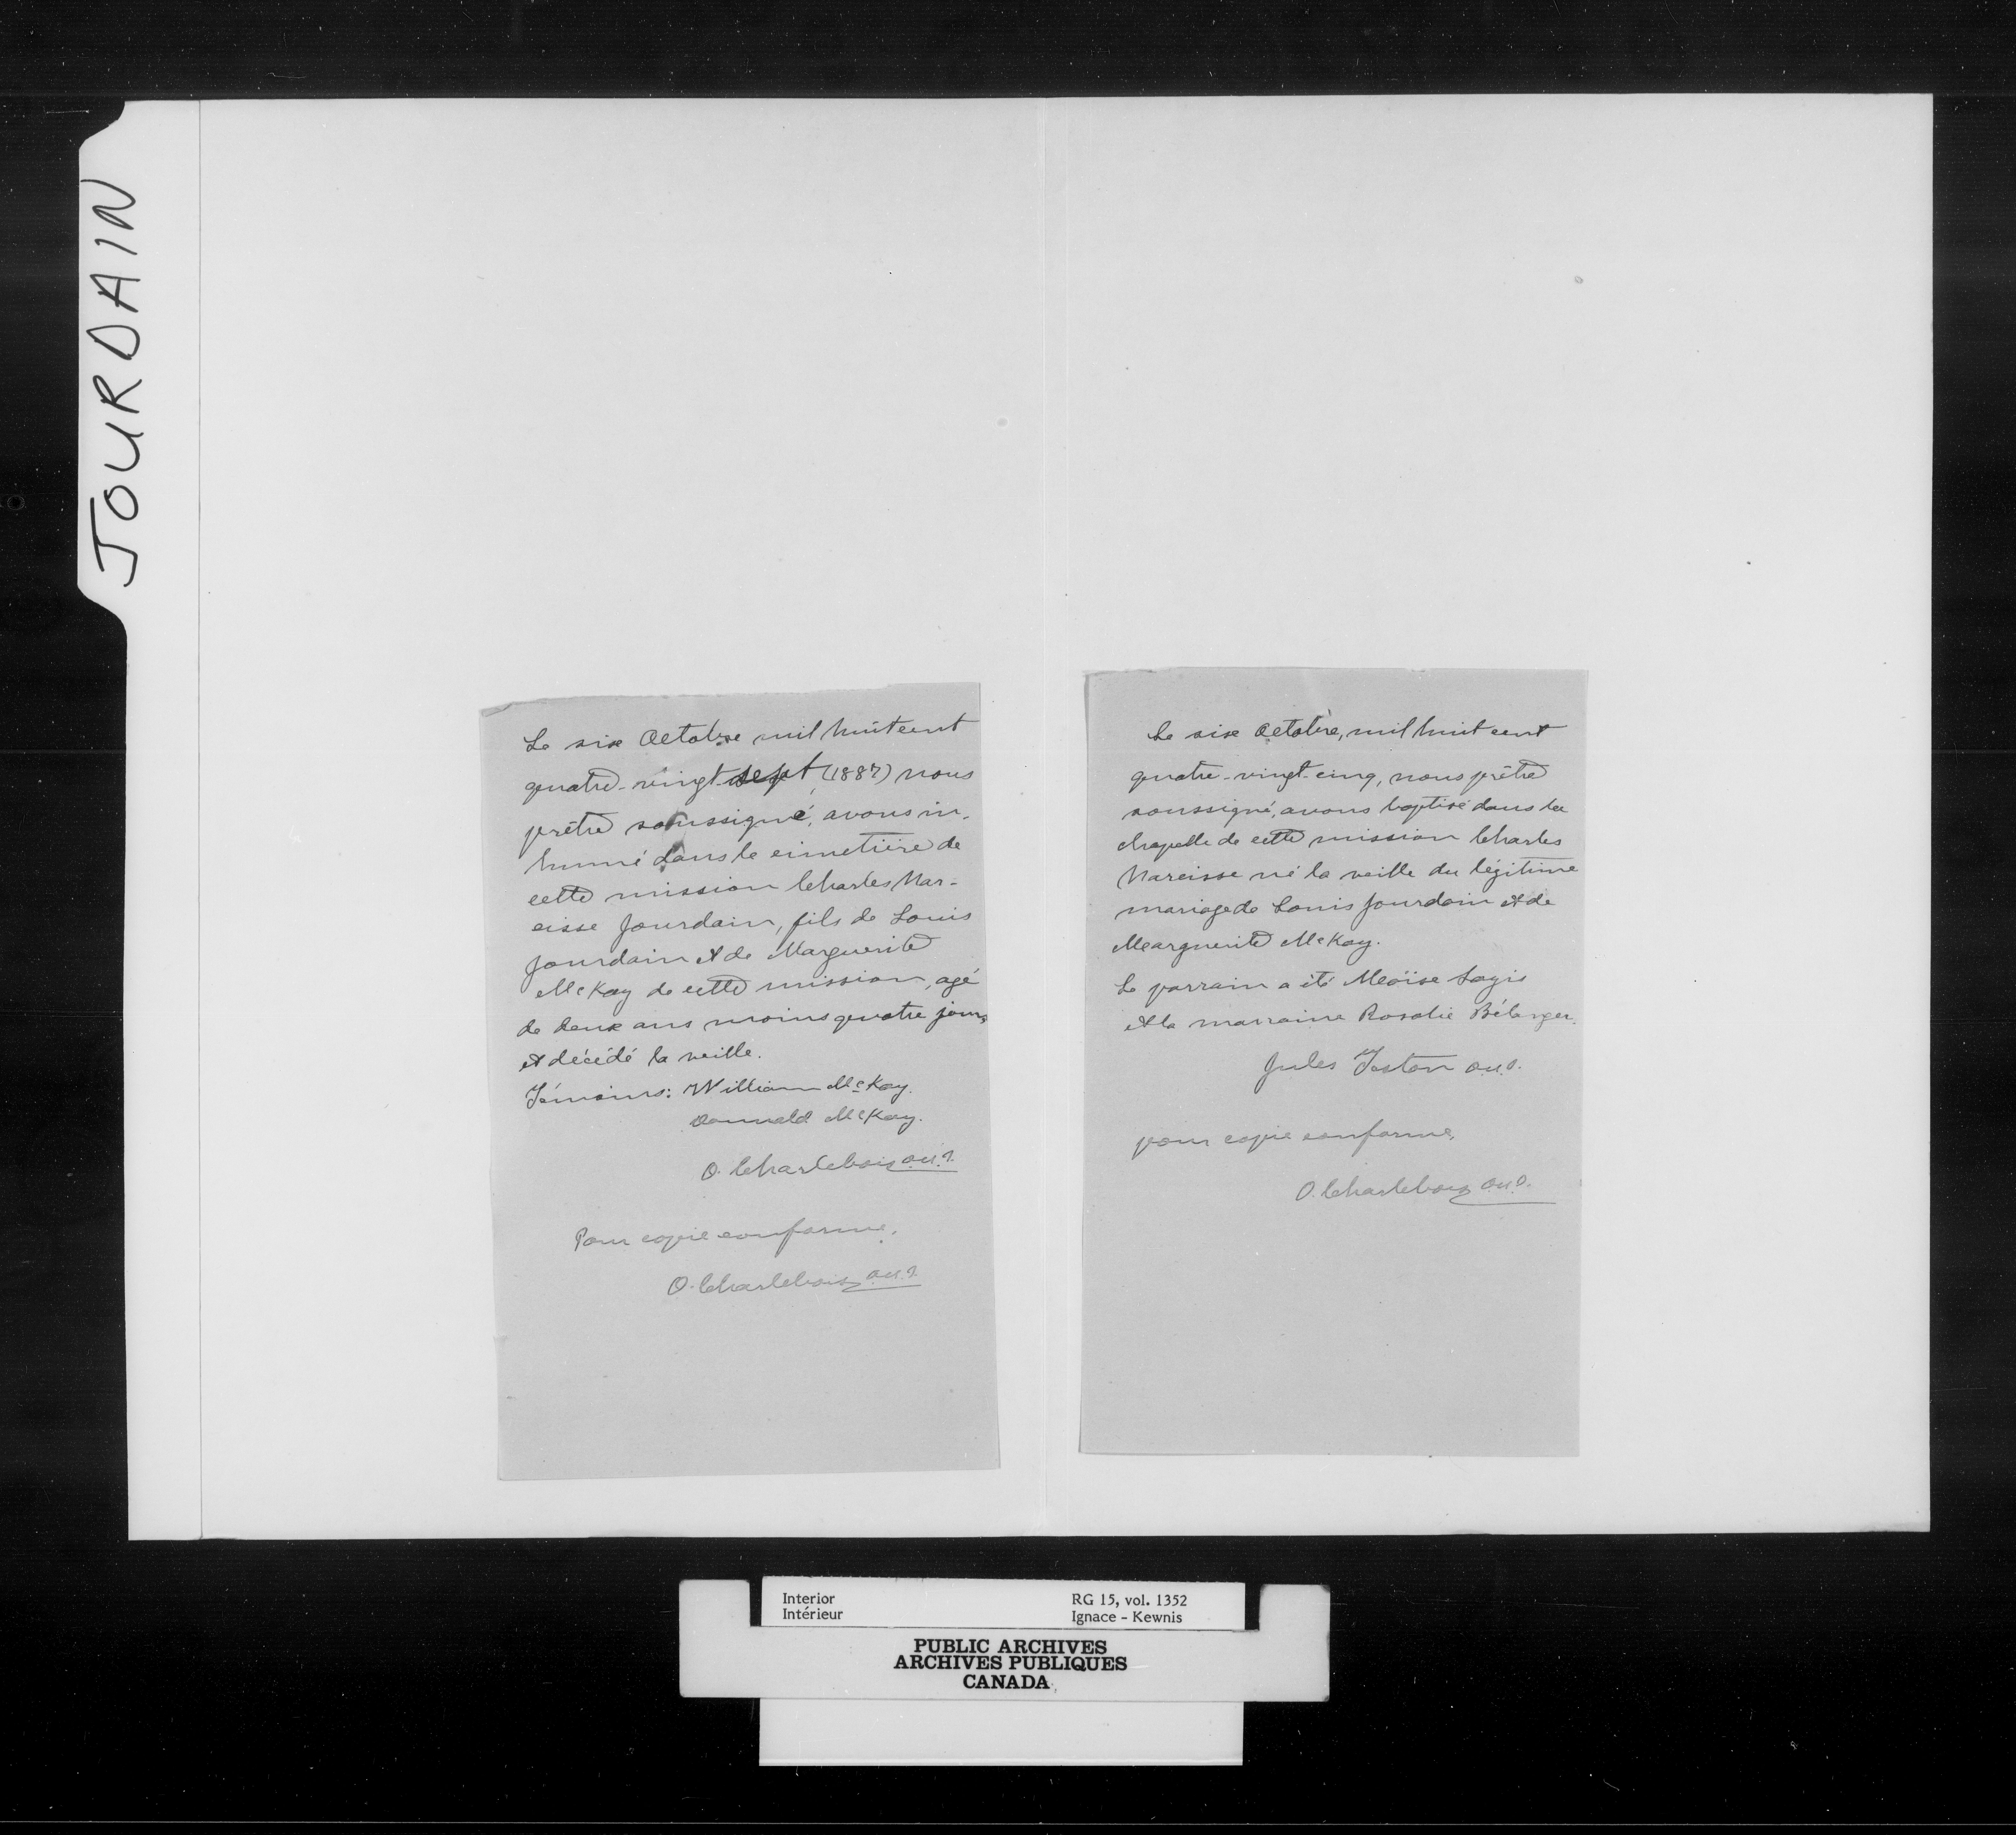 JOURDAIN
Le six Octobre mil huit cent
quatre-vingt-sept (1887) nous
prêtre soussigné, avons in-
humé dans le cimetière de
cette mission Charles Nar-
cisse Jourdain, fils de Louis
Jourdain et de Marguerite
McKay de cette mission, agé
de deux ans moins quatre jours
et décédé la veille.
Témoins: William McKay.
Donnald McKay.
O. Charlebois o.m.i.
Pour copie conforme,
O. Charlebois o.m.i.
Le six Octobre, mil huit cent
quatre-vingt-cinq, nous prêtre
soussigné, avons baptisé dans la
chapelle de cette mission Charles
Narcisse né la veille du légitime
mariage de Louis Jourdain et de
Marguerite McKay.
Le parrain a été Moïse
et la marraine Rosalie Bélanger.
Jules Teston o.m.i.
pour copie conforme,
O. Charlebois o.m.i.
Interior RG 15, vol. 1352
Intérieur Ignace - Kewnis
PUBLIC ARCHIVES
ARCHIVES PUBLIQUES
CANADA